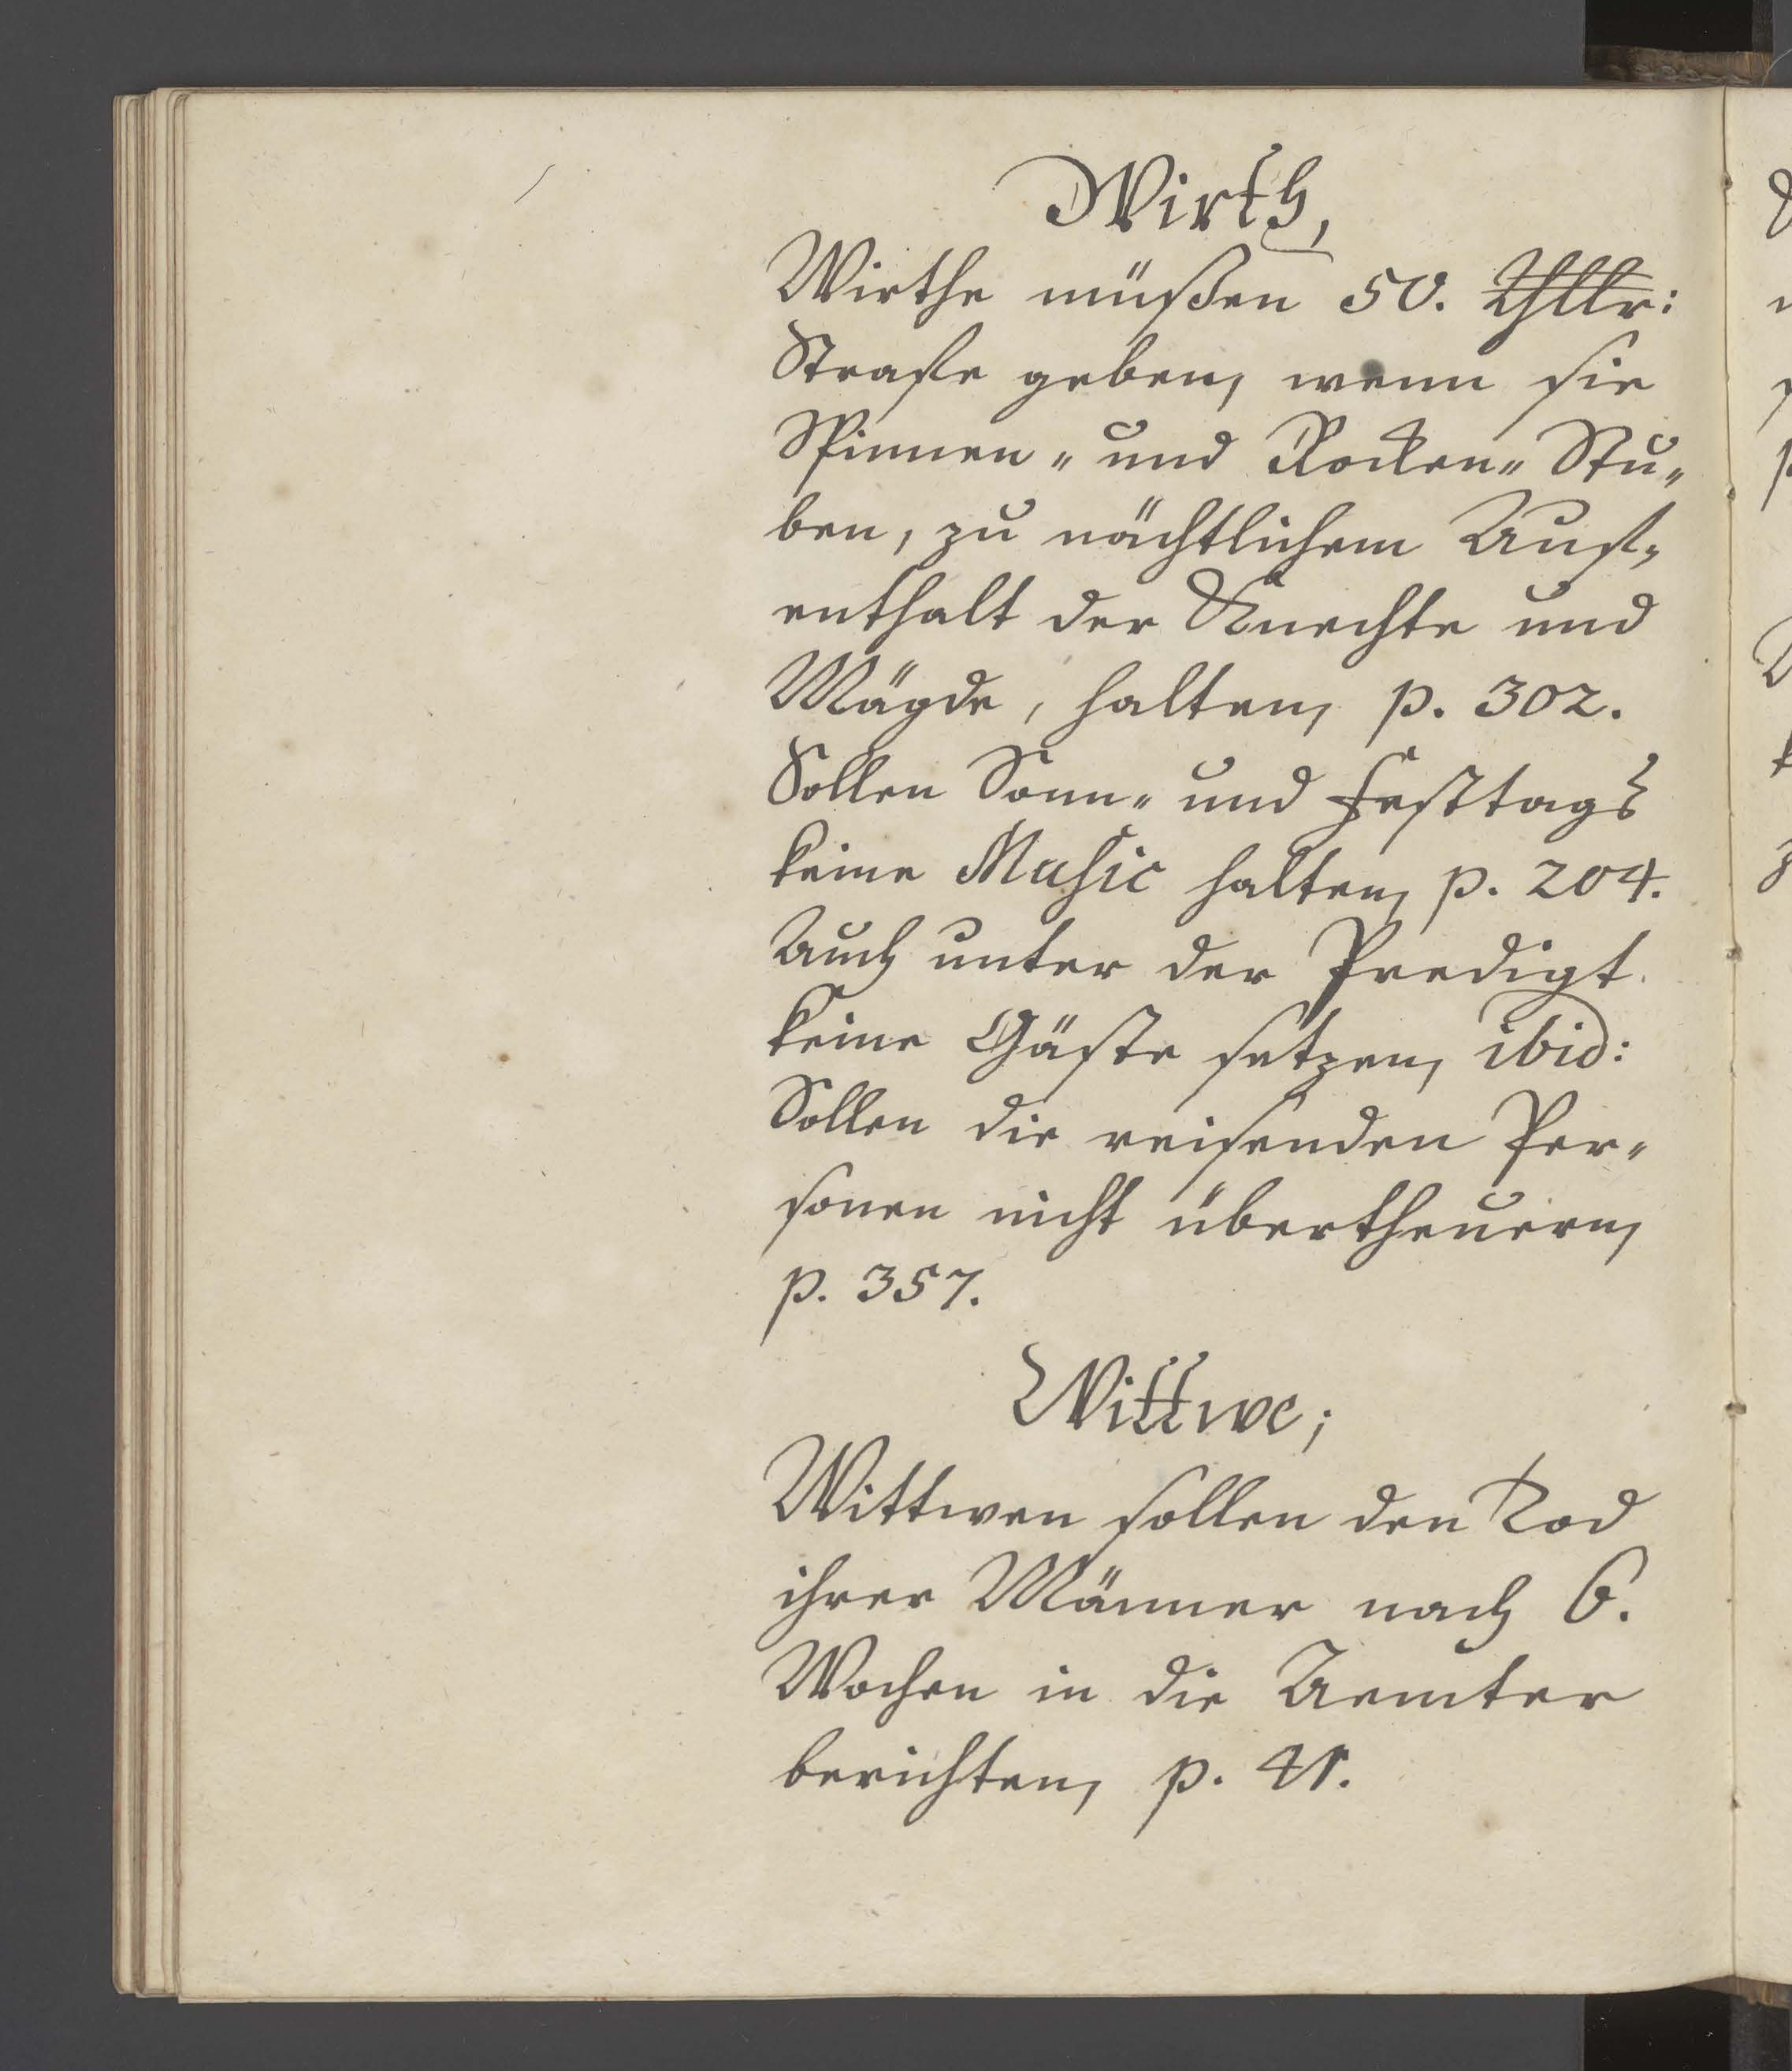 Wirth,
Wirthe müßen 50. Thllr:
Strafe geben, wenn sie
Spinnen- und Rocken- Stu-
ben, zu nächtlichem Auf-
enthalt der Knechte und
Mägde, halten, p. 302.
Sollen Sonn- und Festtags
keine Music halten, p. 204.
Auch unter der Predigt
keine Gäste setzen, ibid:
Sollen die reisenden Per-
sonen nicht übertheuern,
p. 357.
Wittwe;
Wittwen sollen den Tod
ihrer Männer nach 6.
Wochen in die Aemter
berichten, p.